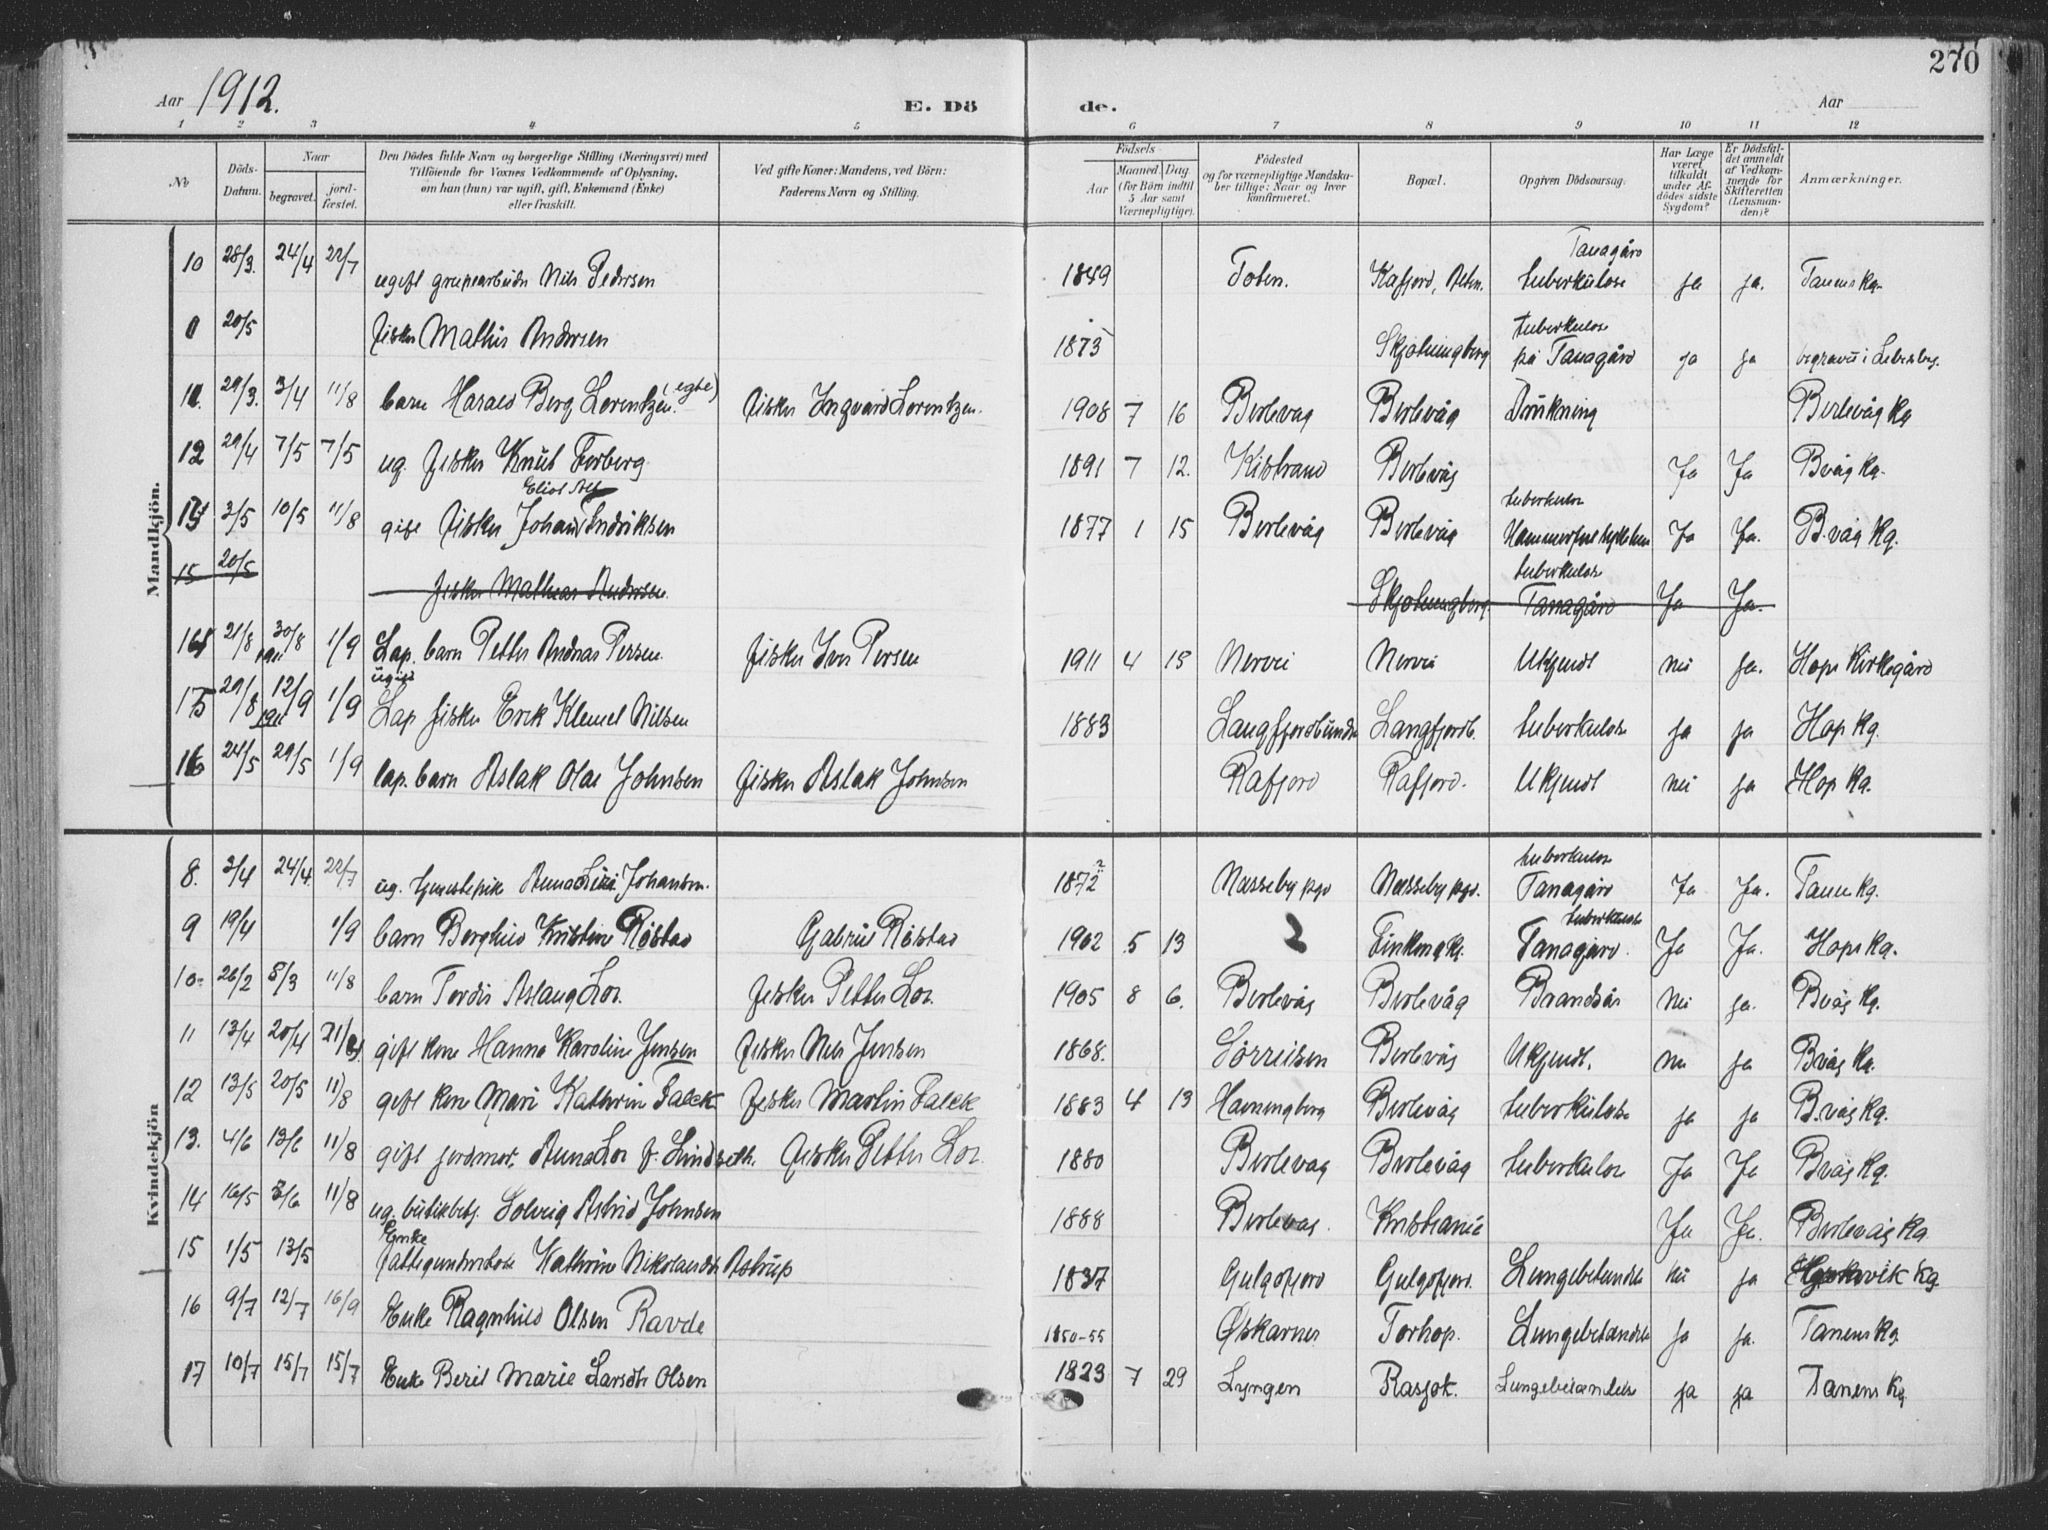 270
Aar 1912. E. Dö de. Aar
1 2 3 4 5 6 7 8 9 10 11 12
No Döds-Datum. Naar begravet. jord-fæstet. Den Dödes fulde Navn og borgerlige Stilling (Næringsvei) med Tilföiende for Voxnes Vedkommende af Oplysning, om han (hun) var ugift, gift, Enkemand (Enke) eller fraskilt. Ved gifte Koner: Mandens, ved Börn: Faderens Navn og Stilling. Födsels Aar Maaned. Dag (for Börn indtil 5 Aar samt Værnepligtige). Födested og for værnepligtige Mandskaber tillige: Naar og hvor konfirmeret. Bopæl. Opgiven Dödsaarsag. Har Læge været tilkaldt under Afdödes sidste Sygdom? Er Dödsfaldet anmeldt af Vedkommende for Skifteretten (Lensmanden)? Anmærkninger.
Mandkjön.
10 28/3. 24/4 22/7 ugift Nils Pedersen 1849 Toten. Kafjord, Alten. Tanagård tuberkulose ja ja. Tanens kg.
20/5 fisker Mathis Andersen 1873 tuberkulose på Tanagård ja ja begravet i
11. 29/3. 3/4 11/8 barn Harald Berg Lorentzen. (egte) fisker Ingvard Lorentzen. 1908 7 16 Berlevag Berlevåg Drukning Berlevåg kg
12 29/4 7/5 7/5 ug. fisker Knut Forberg. 1891 7 12. Kistrand Berlevåg Ja Ja Bvåg kg.
13 3/5 10/5 11/8 gift fisker Johan Eliot Alf Fredriksen 1877 1 15 Berlevåg Berlevåg tuberkulose Hammerfest Ja Ja. B.våg kg.
15 20/5 fisker Mathias Andersen. tuberkulose Tanagård Ja Ja.
14 21/8 30/8 1911 1/9 Lap. barn Petter Andras Persen. fisker Iver Persen 1911 4 15 Nervei Nervei Ukjendt nei ja. Hops Kirkegård
15 29/8 12/9 1911 1/9 ugift Lap fisker Erik Klemet Nilsen 1883 Langfjordbunden Langfjordb. tuberkulose ja ja Hop kg.
16 24/5 29/5 1/9 lap. barn Aslak Olai Johnsen fisker Aslak Johnsen Rafjord Rafjord. Ukjendt nei ja Hop kg.
Kvindekjön
8. 3/4 24/4. 22/7 ug. Anna Lisa Johansen. 1872? Næsseby pgd Næsseby pgd. tuberkulose Tanagård Ja Ja. Tanen kg.
9 19/4 1/9 barn Borghild Kristine Røstad Gabriel Røstad 1902 5 13 ? Finkongkg. tuberkulose Tanagård. Ja Ja. Hops kg.
10 26/2 8/3 11/8 barn Tordis Aslaug Lor. fisker Petter Lor. 1905 8 6. Berlevåg Berlevåg Brandsår Nei ja. Bvåg kg.
11 13/4 20/4 gift kone Hanna Karoline Jensen fisker Nils Jensen 1868. Sørreisen Berlevåg Ukjendt. nei ja Bvåg kg.
12 13/5 20/5 11/8 gift kone Mari Kathrine Falck fisker Martin Falck 1883 4 13 Havningberg Berlevåg tuberkulose ja ja B.våg kg.
13. 4/6 13/6 11/8 gift jordmor. Anna Lor f. Lindseth. fisker Petter Lor. 1880 Berlevag Berlevåg tuberkulose Ja Ja Bvåg kg.
14 16/5 3/6 11/8 ug. butikbetj. Solveig Astrid Johnsen 1888 Berlevag. Kristiania Ja Ja. Berlevåg kg.
15 1/5 13/5 Enke fattigunderstøt. Kathrine Nikolaisdtr Astrup 1837 Gulgofjord Gulgofjord. Lungebetændelse nei ja kg
16 9/7 12/7 16/9 Enke Ragnhild Olsen Ravde 1850-55 Øskarnes Torhop. Lungebetændelse ja ja. Tanens kg
17 10/7 15/7 15/7 Enke Beret Marie Larsdtr Olsen 1823 7 29 Lyngen Rasjok. Lungebetændelse ja ja Tanens kg